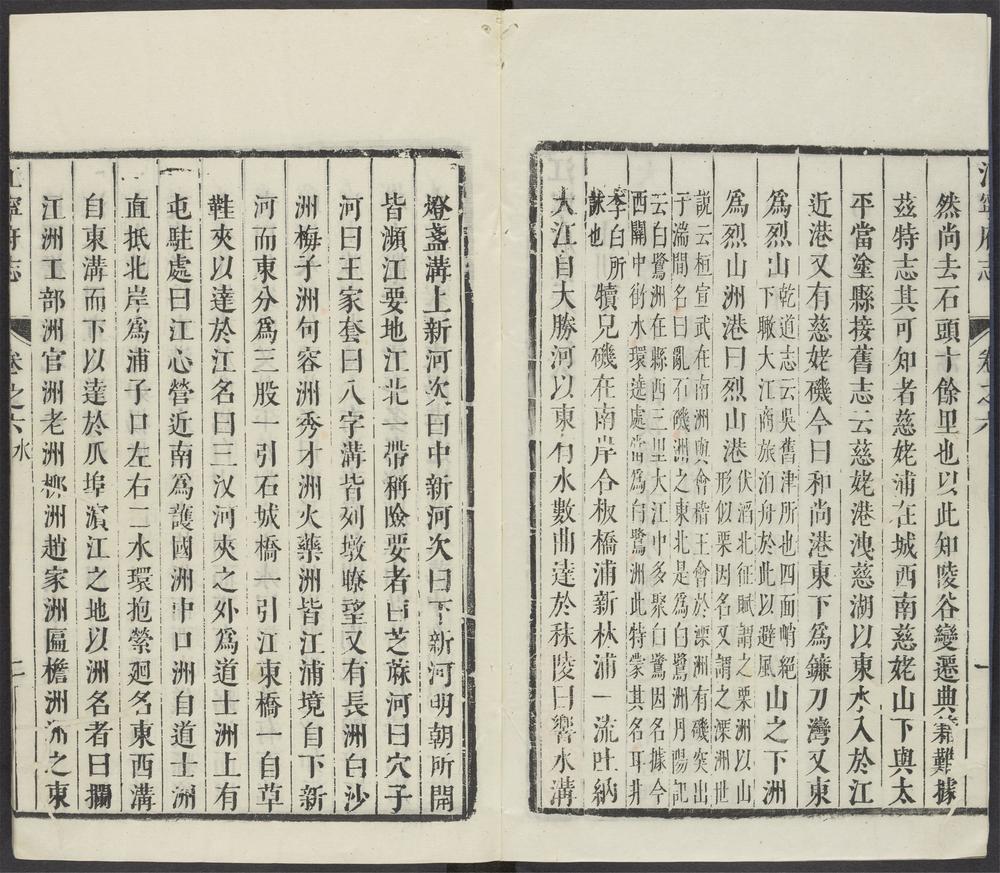 江寧府志
卷之六
一
然尚去石頭十餘里也以此知陵谷變遷典籍難據
茲特志其可知者慈姥浦在城西南慈姥山下與太
平當塗縣接舊志云慈姥港洩慈湖以東水入於江
近港又有慈姥磯今曰和尚港東下為鐮刀灣又東
為烈山
乾道志云吳舊津所也四面峭絕
下瞰大江商旅泊舟於此以避風
山之下洲
為烈山洲港曰烈山港
伏滔北征賦謂之栗洲以山
形似栗因名又謂之溧洲世
說云桓宣武在南洲與會稽王會於溧洲有磯突出
于湍間名曰亂石磯洲之東北是為白鷺洲丹陽記
云白鷺洲在縣西三里大江中多聚白鷺因名據今
西關中街水環遶處當為白鷺洲此特蒙其名耳非
李白所
詠也
犢兒磯在南岸合板橋浦新林浦一流吐納
大江自大勝河以東有水數曲達於秣陵曰響水溝
燈盞溝上新河次曰中新河次曰下新河明朝所開
皆瀕江要地江北一帶稱險要者曰芝蔴河曰穴子
河曰王家套曰八字溝皆列墩瞭望又有長洲白沙
洲梅子洲句容洲秀才洲火藥洲皆江浦境自下新
河而東分為三股一引石城橋一引江東橋一自草
鞋夾以達於江名曰三汊河夾之外為道士洲上有
屯駐處曰江心營近南為護國洲中口洲自道士洲
直抵北岸為浦子口左右二水環抱縈廻名東西溝
自東溝而下以達於爪埠濱江之地以洲名者曰攔
江洲工部洲官洲老洲柳洲趙家洲匾檐洲洲之東
江寧府志
卷之六
水
二